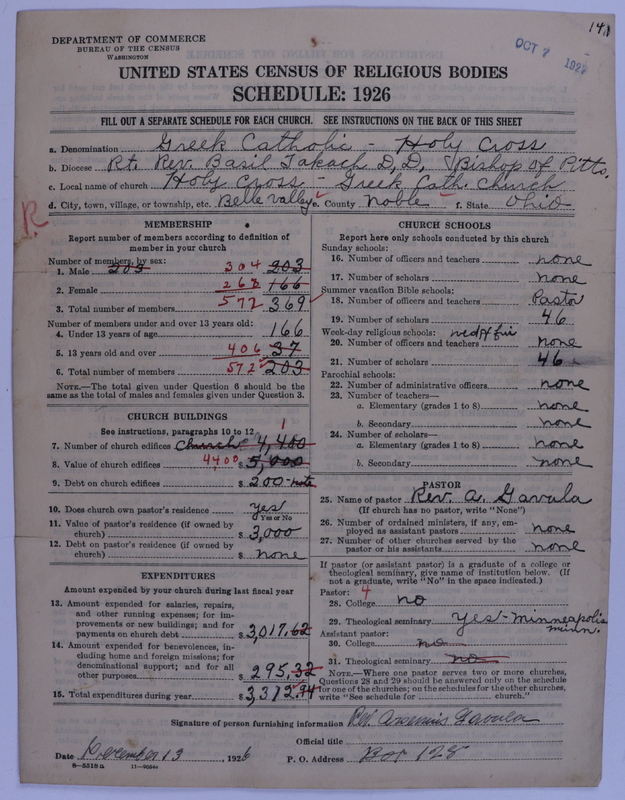 141
DEPARTMENT OF COMMERCE
BUREAU OF THE CENSUS
WASHINGTON
OCT 7 192
UNITED STATES CENSUS OF RELIGIOUS BODIES
SCHEDULE: 1926
FILL OUT A SEPARATE SCHEDULE FOR EACH CHURCH. SEE INSTRUCTIONS ON THE BACK OF THIS SHEET
a. Denomination Greek Catholic - Holy Cross
b. Diocese Rt. Rev. Basil Takach D,D, Bishop of Pitts.
c. Local name of church Holy Cross - Greek Cath. Church
d. City, town, village, or township, etc. Belle Valley e. County Noble f. State Ohio
R
MEMBERSHIP
Report number of members according to definition of member in your church
Number of members, by sex:
1. Male 203 304 203
2. Female 268 166
3. Total number of members 572 369
Number of members under and over 13 years old:
4. Under 13 years of age 166
5. 13 years old and over 406 37
6. Total number of members 572 203
NOTE.—The total given under Question 6 should be the same as the total of males and females given under Question 3.
CHURCH BUILDINGS
See instructions, paragraphs 10 to 12
7. Number of church edifices Church 4,400 1
8. Value of church edifices 4400 $ 5,000
9. Debt on church edifices $ 200
10. Does church own pastor's residence yes
Yes or No
11. Value of pastor's residence (if owned by church) $ 3,000
12. Debt on pastor's residence (if owned by church) $ none
EXPENDITURES
Amount expended by your church during last fiscal year
13. Amount expended for salaries, repairs, and other running expenses; for improvements or new buildings; and for payments on church debt $ 3,017.62
14. Amount expended for benevolences, including home and foreign missions; for denominational support; and for all other purposes $ 295.32
15. Total expenditures during year $ 3,312.94
CHURCH SCHOOLS
Report here only schools conducted by this church
Sunday schools:
16. Number of officers and teachers none
17. Number of scholars none
Summer vacation Bible schools:
18. Number of officers and teachers Pastor
19. Number of scholars 46
Week-day religious schools:
20. Number of officers and teachers none
21. Number of scholars 46
Parochial schools:
22. Number of administrative officers none
23. Number of teachers—
a. Elementary (grades 1 to 8) none
b. Secondary none
24. Number of scholars—
a. Elementary (grades 1 to 8) none
b. Secondary none
PASTOR
25. Name of pastor Rev. A. Gavula
(If church has no pastor, write "None")
26. Number of ordained ministers, if any, employed as assistant pastors none
27. Number of other churches served by the pastor or his assistants none
If pastor (or assistant pastor) is a graduate of a college or theological seminary, give name of institution below. (If not a graduate, write "No" in the space indicated.)
Pastor: 4
28. College no
29. Theological seminary yes - Minneapolis Minn.
Assistant pastor:
30. College no
31. Theological seminary no
NOTE.—Where one pastor serves two or more churches, Questions 28 and 29 should be answered only on the schedule for one of the churches; on the schedules for the other churches, write "See schedule for church."
Signature of person furnishing information Rev. Arsenius Gavula
Official title
Date December 13, 1926 P. O. Address Box 128
8—5518a 11—9064